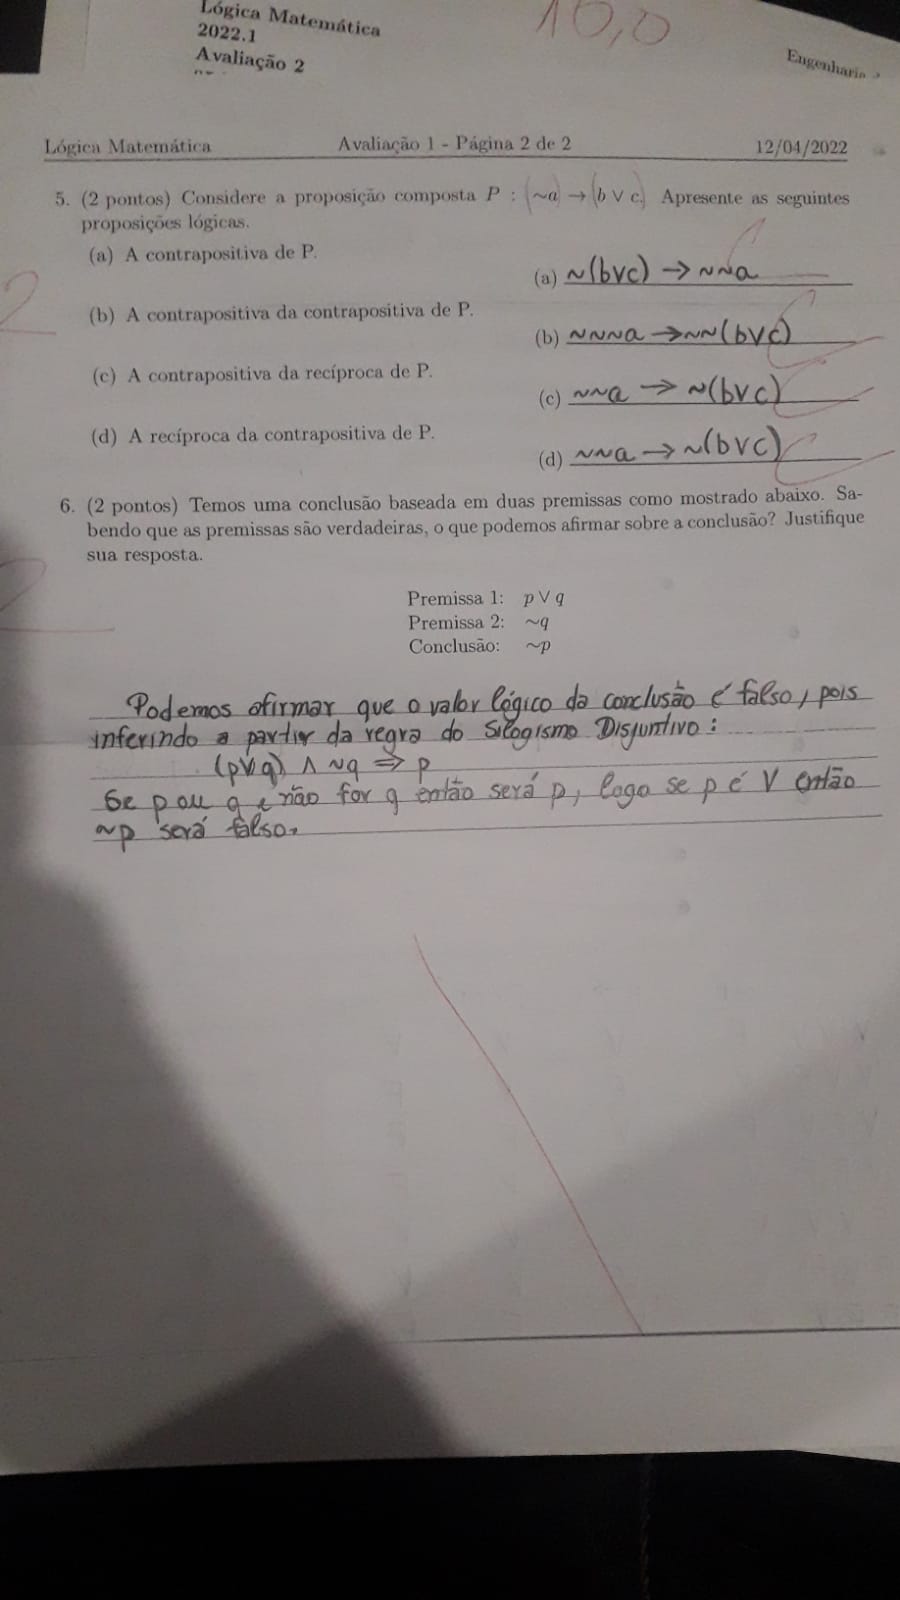 Lógica Matemática
2022.1
Avaliação 2
10,0
Engenharia
Lógica Matemática Avaliação 1 - Página 2 de 2 12/04/2022
5. (2 pontos) Considere a proposição composta P : (~a) → (b ∨ c). Apresente as seguintes
proposições lógicas.
(a) A contrapositiva de P.
(a) ~(b∨c) → ~~a
2
(b) A contrapositiva da contrapositiva de P.
(b) ~~~a → ~~(b∨c)
(c) A contrapositiva da recíproca de P.
(c) ~~a → ~(b∨c)
(d) A recíproca da contrapositiva de P.
(d) ~~a → ~(b∨c)
6. (2 pontos) Temos uma conclusão baseada em duas premissas como mostrado abaixo. Sa-
bendo que as premissas são verdadeiras, o que podemos afirmar sobre a conclusão? Justifique
sua resposta.
2
Premissa 1: p ∨ q
Premissa 2: ~q
Conclusão: ~p
Podemos afirmar que o valor lógico da conclusão é falso, pois
inferindo a partir da regra do Silogismo Disjuntivo:
(p∨q) ∧ ~q ⇒ p
Se p ou q e não for q então será p, logo se p é V então
~p será falso.